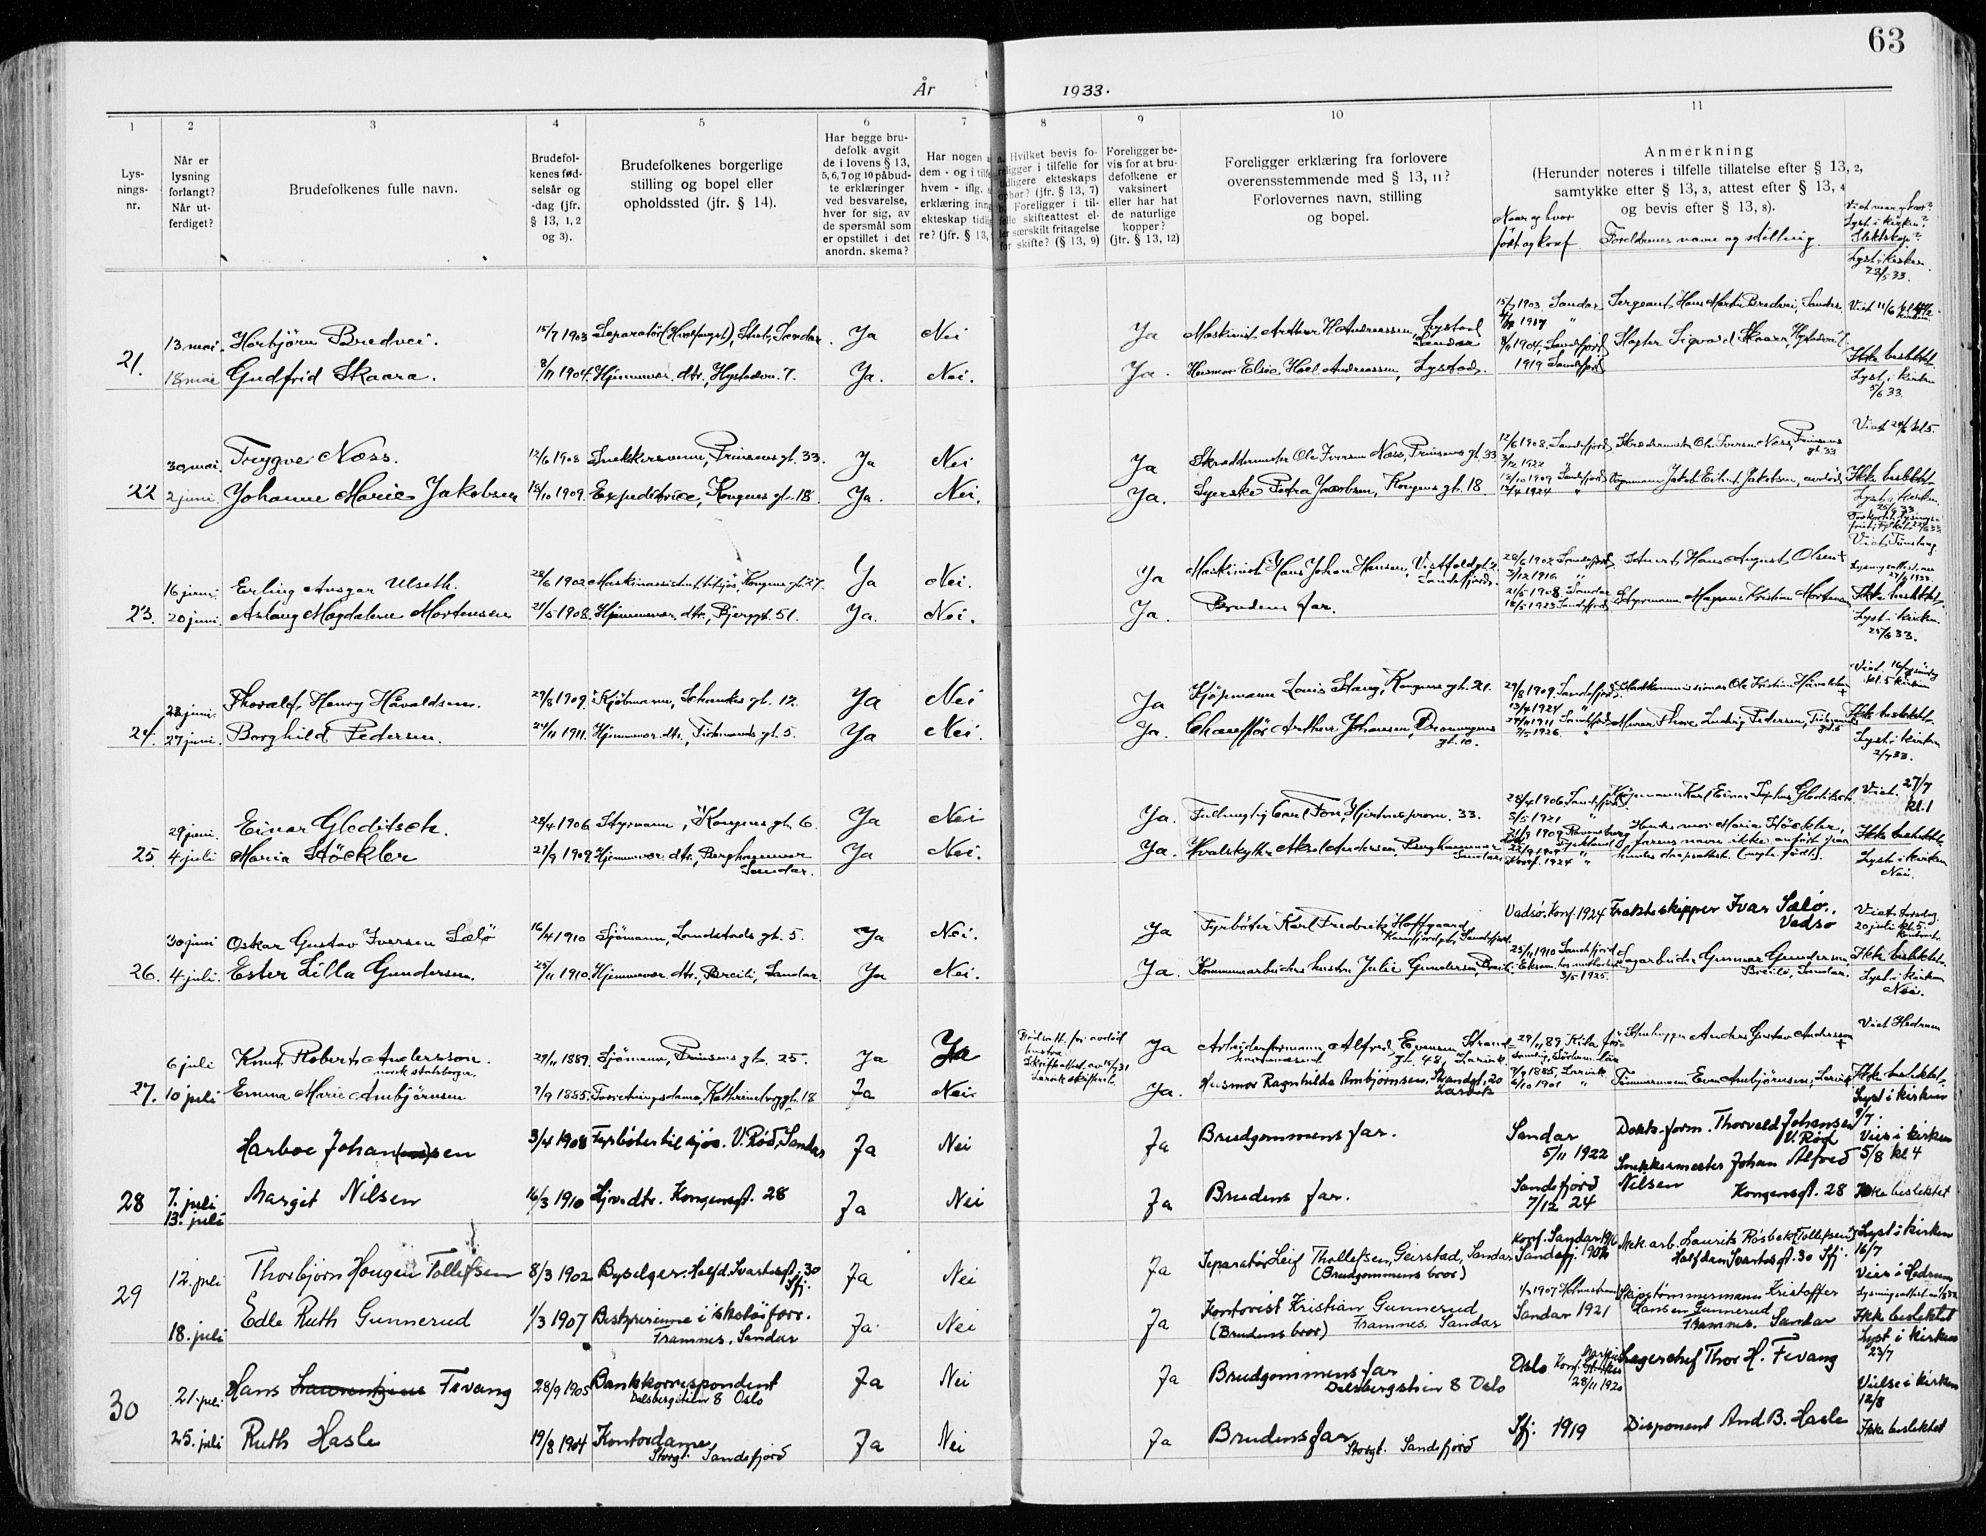 63
År 1933.
1 2 3 4 5 6 7 8 9 10 11
Lys-
nings-
nr.
Når er
lysning
forlangt?
Når ut-
ferdiget?
Brudefolkenes fulle navn.
Brudefol-
kenes fød-
selsår og
-dag (jfr.
§ 13, 1, 2
og 3).
Brudefolkenes borgerlige
stilling og bopel eller
opholdssted (jfr. § 14).
Har begge bru-
defolk avgit
de i lovens § 13,
5, 6, 7 og 10 påbud-
te erklæringer
ved besvarelse,
hver for sig, av
de spørsmål som
er opstillet i det
anordn. skema?
Har nogen a
dem - og i tilfe
hvem - iflg.
erklæring inng
ekteskap tidlig
re? (jfr. § 13,
Hvilket bevis fo-
religger i tilfelle for
tidligere ekteskaps
ophør? (jfr. § 13, 7)
Foreligger i til-
felle skifteattest el-
ler særskilt fritagelse
for skifte? (§ 13, 9)
Foreligger be-
vis for at bru-
defolkene er
vaksinert
eller har hat
de naturlige
kopper?
(jfr. § 13, 12)
Foreligger erklæring fra forlovere
overensstemmende med § 13, 11?
Forlovernes navn, stilling
og bopel.
Anmerkning
(Herunder noteres i tilfelle tillatelse efter § 13, 2,
samtykke efter § 13, 3, attest efter § 13, 4
og bevis efter § 13, 8).
Naar og hvor
født og konf.
Foreldrenes navn og stilling.
Viet naar og hvor?
Lyst i kirken?
Slektskap?
Lyst i kirken
28/5 33.
21. 13 mai Herbjörn Bredvei. 15/7 1903 Separatör (Hvalfangst), Sandar. Ja Nei
Ja Maskinist Arthur H. Andreassen, Lystad Sandar 15/7 1903 Sandar 1917 Sergeant Hans Martin Bredvei, Sandar Viet 11/6
18 mai Gudfrid Skaara. 8/11 1904. Hjemmevær. dtr., Hystadv. 7. Ja. Nei.
Ja. Husmor Elsie Hoel Andreassen, Lystad. 8/11 1904, Sandefjord 1919 Sandefjord Sigvard Skaara, Hystadv. 7 Ikke beslektet.
Lyst i kirken
5/6 33.
22 30 mai Trygve Næss. 12/6 1908 Snekkersvenn, Prinsens gt. 33. Ja Nei
Ja Skreddermester Ole Iversen Næss, Prinsens gt. 33 12/6 1908. Sandefjord 1922 Skreddermester Ole Iversen Næss, Prinsens gt. 33 Viet kl. 5.
2 juni Johanne Marie Jakobsen 13/10 1909. Expeditrice, Kongens gt. 18. Ja. Nei.
Ja. Syerske Petra Jacobsen, Kongens gt. 18. 13/10 1909 Sandefjord 1924 Jakob Jakobsen, avdöd Ikke beslektet.
Lyst i kirken
25/6 33
23. 16 juni Erling Ansgar Ulseth. 28/6 1902 Maskinassistent tilsjös, Kongens gt. 27. Ja Nei.
Ja Maskinist Hans Johan Hansen, Vestfoldgt. 2 Sandefjord. 28/6 1902 Sandefjord 3/12 1916 Hans August Olsen + Viet Tönsberg
20 juni Aslaug Magdalene Mortensen 21/5 1908. Hjemmevær. dtr., Bjerggt. 51. Ja. Nei.
Ja. Brudens far. 21/5 1908. Sandar 1923 Sandefjord Styrmann Magnus Kristian Mortensen Ikke beslektet.
Lyst i kirken
25/6 33.
24. 23 juni. Thoralf Henry Håvaldsen. 29/8 1909. Kjöbmann, Schanches gt. 12. Ja Nei
Ja Kjöpmann Louis Stang, Kongens gt. 21. 29/8 1909. Sandefjord 1924 Stadskommissionær Ole Kristian Håvaldsen + Viet 16/7 kl. 5 kirken
27 juni. Borghild Pedersen. 24/11 1911. Hjemmevær. dtr., Tidemands gt. 5. Ja Nei.
Ja. Chauffør Arthur Johansen, Dronningens gt. 10. 24/11 1911 Sandefjord 1926. Murer Thore Ludvig Pedersen, Tidemands gt. 5 Ikke beslektet
Lyst i kirken
2/7 33.
25 29 juni. Einar Gloditsch. 28/4 1906 Styrmann, Kongens gt. 6. Ja Nei
Ja. Fullmektig Carl Ton, Hjertnesprom. 33. 28/4 1906. Sandefjord 5/5 1921 Kjöpmann Karl Einar Gloditsch Viet. 27/7 kl. 1
4 juli Maria Stöckler 21/9 1909 Hjemmevær. dtr., Berghammer Sandar. Ja Nei.
Ja. Hvalskytter Aksel Andersen, Berghammer Sandar 21/9 1909 Ravensburg Tyskland Konf. 1924 Hendes mor Maria Stöckler, farens navn ikke anfört paa hendes daapsattest. Ikke beslektet.
Lyst i kirken
Nei.
26. 30 juni Oskar Gustav Iversen Sælö 16/4 1910 Sjömann, Landstads gt. 5. Ja Nei.
Ja Fyrböter Karl Fredrik Hoffgaard, Sandefjord. Vadsö. Konf. 1924 Fraktskipper Ivar Sælö. Vadsø Viet torsdag 20 juli kl. 5
4 juli. Ester Lilla Gundersen. 25/11 1910. Hjemmevær. dtr., Breili, Sandar. Ja Nei.
Ja. Kommunearbeiders hustru Julie Gundersen, Breili 25/11 1910 Sandefjord 3/5 1925. Lagerarbeider Gunnar Gundersen Breili, Sandar. Ikke beslektet.
Lyst i kirken
Nei.
27. 6 juli Knut Robert Andersson. norsk statsborger. 29/11 1889. Sjömann, Prinsens gt. 25. Ja Ja
Dödsatt. for avdöd hustru Skifteattest av 15/7 31 Larvik skifterett. Ja Arbeidsformann Alfred Evensen Strand gt. 48, Larvik. 29/11 89. Anders Gustav Andersson + Viet Hedrum
10 juli Emma Marie Ambjörnsen 7/9 1885. Forretningsdame, Kathrineborggt. 18 Ja Nei.
Ja. Husmor Ragnhilda Ambjörnsen, Strandgt. 20 Larvik 7/9 1885, Larvik 6/10 1901 Tömmermann Even Ambjörnsen, Larvik Ikke beslektet.
Lyst i kirken
9/7.
Harboe Johan(ne)sen 3/4 1908 Fyrböter til sjös. V. Rød, Sandar Ja Nei
Ja Brudgommens far. Sandar 5/11 1922 Dokkform. Thorvald Johansen V. Rød Vies i kirken 5/8 kl 4
28 7. juli 13. juli Margit Nilsen 16/3 1910 Hjv. dtr. Kongensgt. 28 Ja Nei
Ja Brudens far. Sandefjord 7/12 24 Snekkermester Johan Alfred Nilsen Kongensgt. 28 Ikke beslektet
29 12. juli Thorbjörn Haugen Tollefsen 8/3 1902 Byselger. Halfd. Svartesgt. 30 Sfj. Ja Nei
Ja Separatør Leif Thollefsen, Geirstad, Sandar (Brudgommens bror) Konf. Sandar 1916 Sandefj. 1902 Mek. arb. Laurits Rösbek Tollefsen Halfdan Svartesgt. 30 Sfj. Lyst i kirken 16/7 Vies i Hedrum
18. juli Edle Ruth Gunnerud 1/3 1907 Bestyrerinne i skotöiforr. Framnes, Sandar Ja Nei
Ja Kontorist Kristian Gunnerud (Brudens bror) Framnes, Sandar 1/3 1907 Holmestrand Sandar 1921 Skipstømmermann Kristoffer Hansen Gunnerud Framnes. Sandar Ikke beslektet
Lyst i kirken
23/7
30 21. juli Hans Laurentzius Fevang 28/9 1905 Bankkorrespondent Dalsbergstien 8 Oslo Ja Nei
Ja Brudgommens far Dalsbergstien 8 Oslo Oslo 28/11 1920 Lagerchef Thor H. Fevang Vielse i kirken 12/8
25. juli Ruth Hasle 19/8 1904 Kontordame Storgt. Sandefjord Ja Nei
Ja Brudens far Storgt. Sandefjord Sfj. 1919 Disponent And. B. Hasle Ikke beslektet